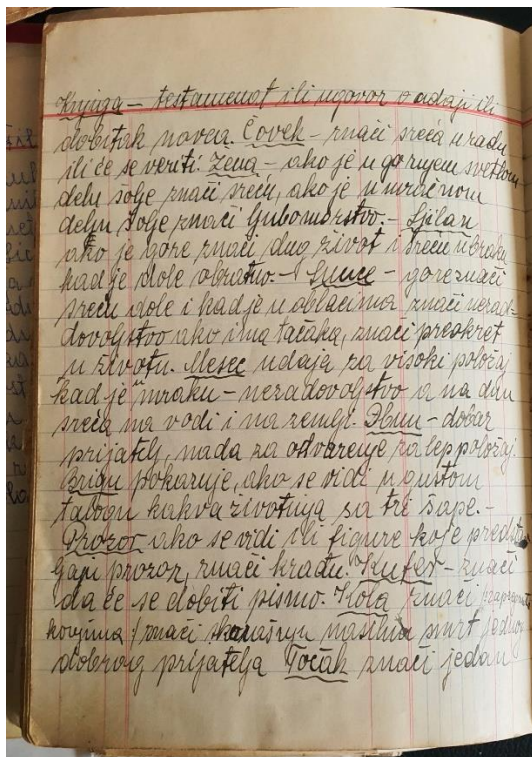 Knjiga – testamenat ili ugovor o udaji ili
dobitak novca. Čovek – znači sreća u radu
ili će se veriti. Žena – ako je u gornjem svetlom
delu šolje znači sreću, ako je u mračnom
delu šolje znači ljubomorstvo. – Ljiljan
ako je gore znači dug život i sreću u braku
kad je dole obratno. – Sunce – gore znači
sreću dole i kad je u oblacima znači nezad-
dovoljstvo ako ima tačaka, znači preokret
u životu. Mesec udaja za visoki položaj
kad je u mraku – nezadovoljstvo a na dnu
sreća na vodi i na zemlji. Džbun – dobar
prijatelj, nada za odvarenje za lep položaj.
Brigu pokazuje, ako se vidi u gustom
talogu kakva životinja sa tri šape. –
Prozor ako se vidi ili figure koje predsta
ljaju prozor, znači krađu. Kufer – znači
da će se dobiti pismo. Kola znači
konjima / znači nasilnu smrt jednog
dobrog prijatelja Točak znači jedan